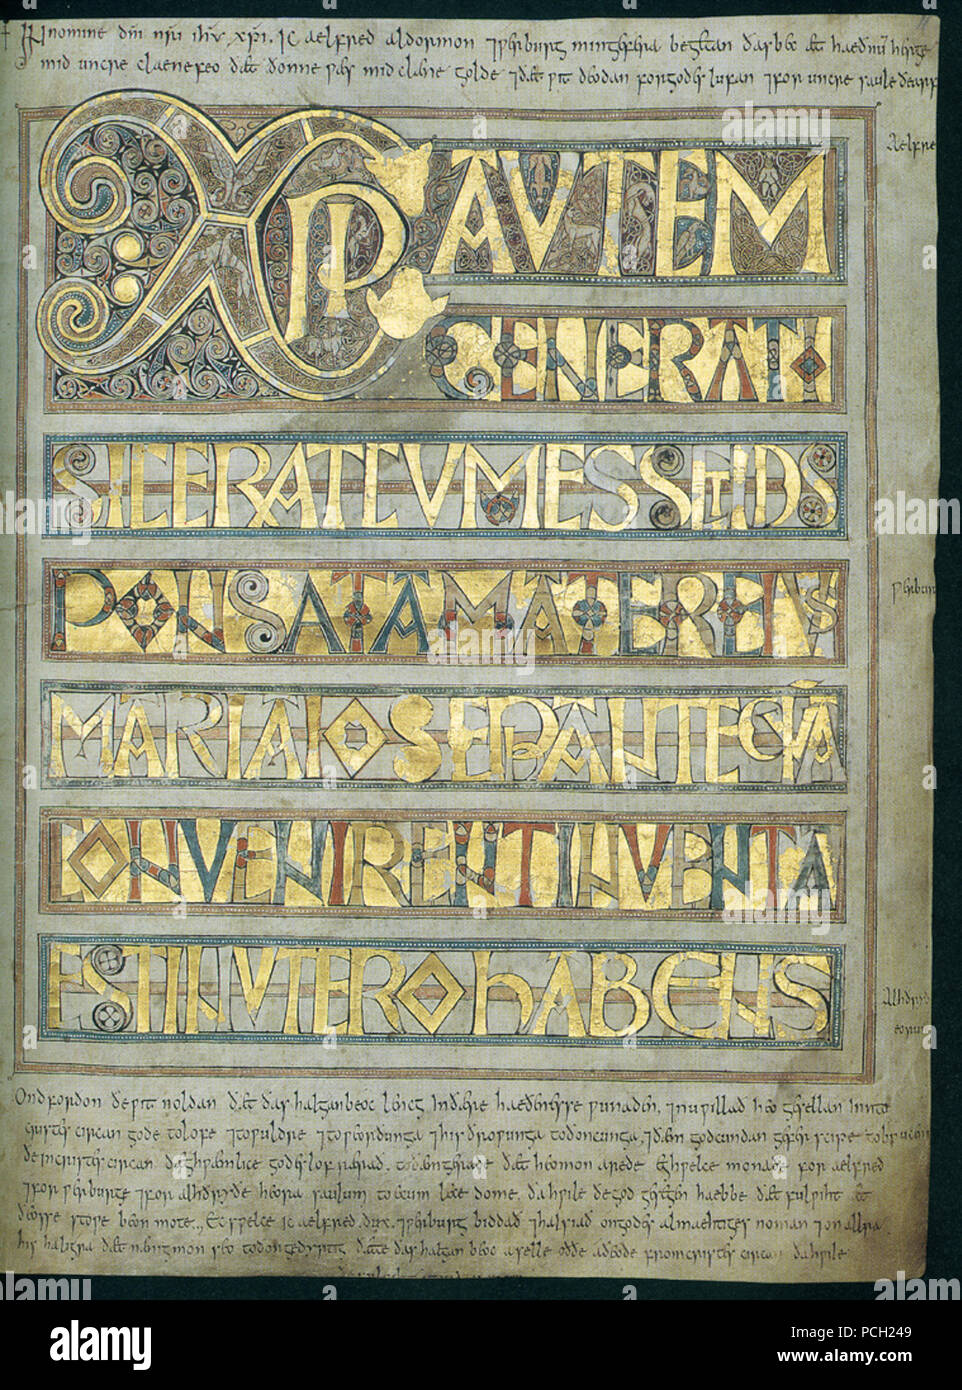 + IN nomine dñi nr̃i ihũ xp̃i. Ic aelfred aldormon ⁊ ƿerburg min gefera begetan ðas bec æt haeðnũ herge
mid uncre claene feo ðæt ðonne ƿæs mid clæne golde ⁊ ðæt ƿit deodan for godes lufan ⁊ for uncre saule ðearf
XPI AUTEM
GENERATI
SIC ERAT CUM ESSET DS
PONSATA MATER EIUS
MARIA IOSEP ANTEQUA
CONVENIRENT INVENTA
EST IN UTERO HABENS
Aelfre
ƿerbur
Alhðryð
eorum
Ond forðon ðe ƿit noldan ðæt ðas halgan beoc lencg in ðære haeðenesse ƿunaden, ⁊ nu ƿillað heo gesellan inn to
cristes circan gode to lofe ⁊ to ƿuldre ⁊ to ƿeorðunga ⁊ his ðroƿunga to ðoncunga, ⁊ ðæm godcundan geferscipe to brucen
ðe in cristes circan dæghƿæmlice godes lof rærað, to ðæm gerade ðæt heo mon arede eghƿelce monaðe for aelfred
⁊ for ƿerburge ⁊ for alhðryðe heora saulum to ecum lecedome, ða hƿile ðe god gesegen haebbe ðæt fulƿiht æt
ðeosse stoƿe beon mote., Ec sƿelce ic aelfred dux ⁊ ƿerburg biddað ⁊ halsiað on godes almaehtiges noman ⁊ on allra
his haligra ðæt nænig mon seo to ðon gedyrstig ðætte ðas halgan beoc aselle oððe aðeode from cristes circan ða hƿile
alamy
Image ID: PCH249
www.alamy.com